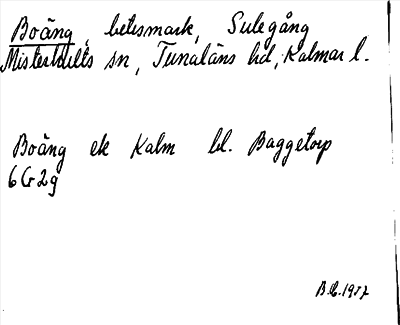 Boäng, betesmark, Sulegång
Misterhults sn, Tunaläns hd, Kalmar l.
Boäng ek Kalm bl. Baggetorp
6G2g
B.C.1977